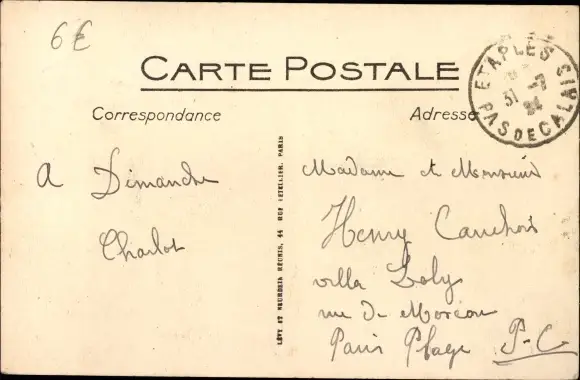 6€
CARTE POSTALE
Correspondance
Adresse
ETAPLES
31 -
PAS DE CALAIS
A Dimanche
Charlot
LÉVY ET NEURDEIN RÉUNIS, 44 RUE LETELLIER, PARIS
Madame et Monsieur
Henry
villa Loly
rue de
Paris Plage P-C